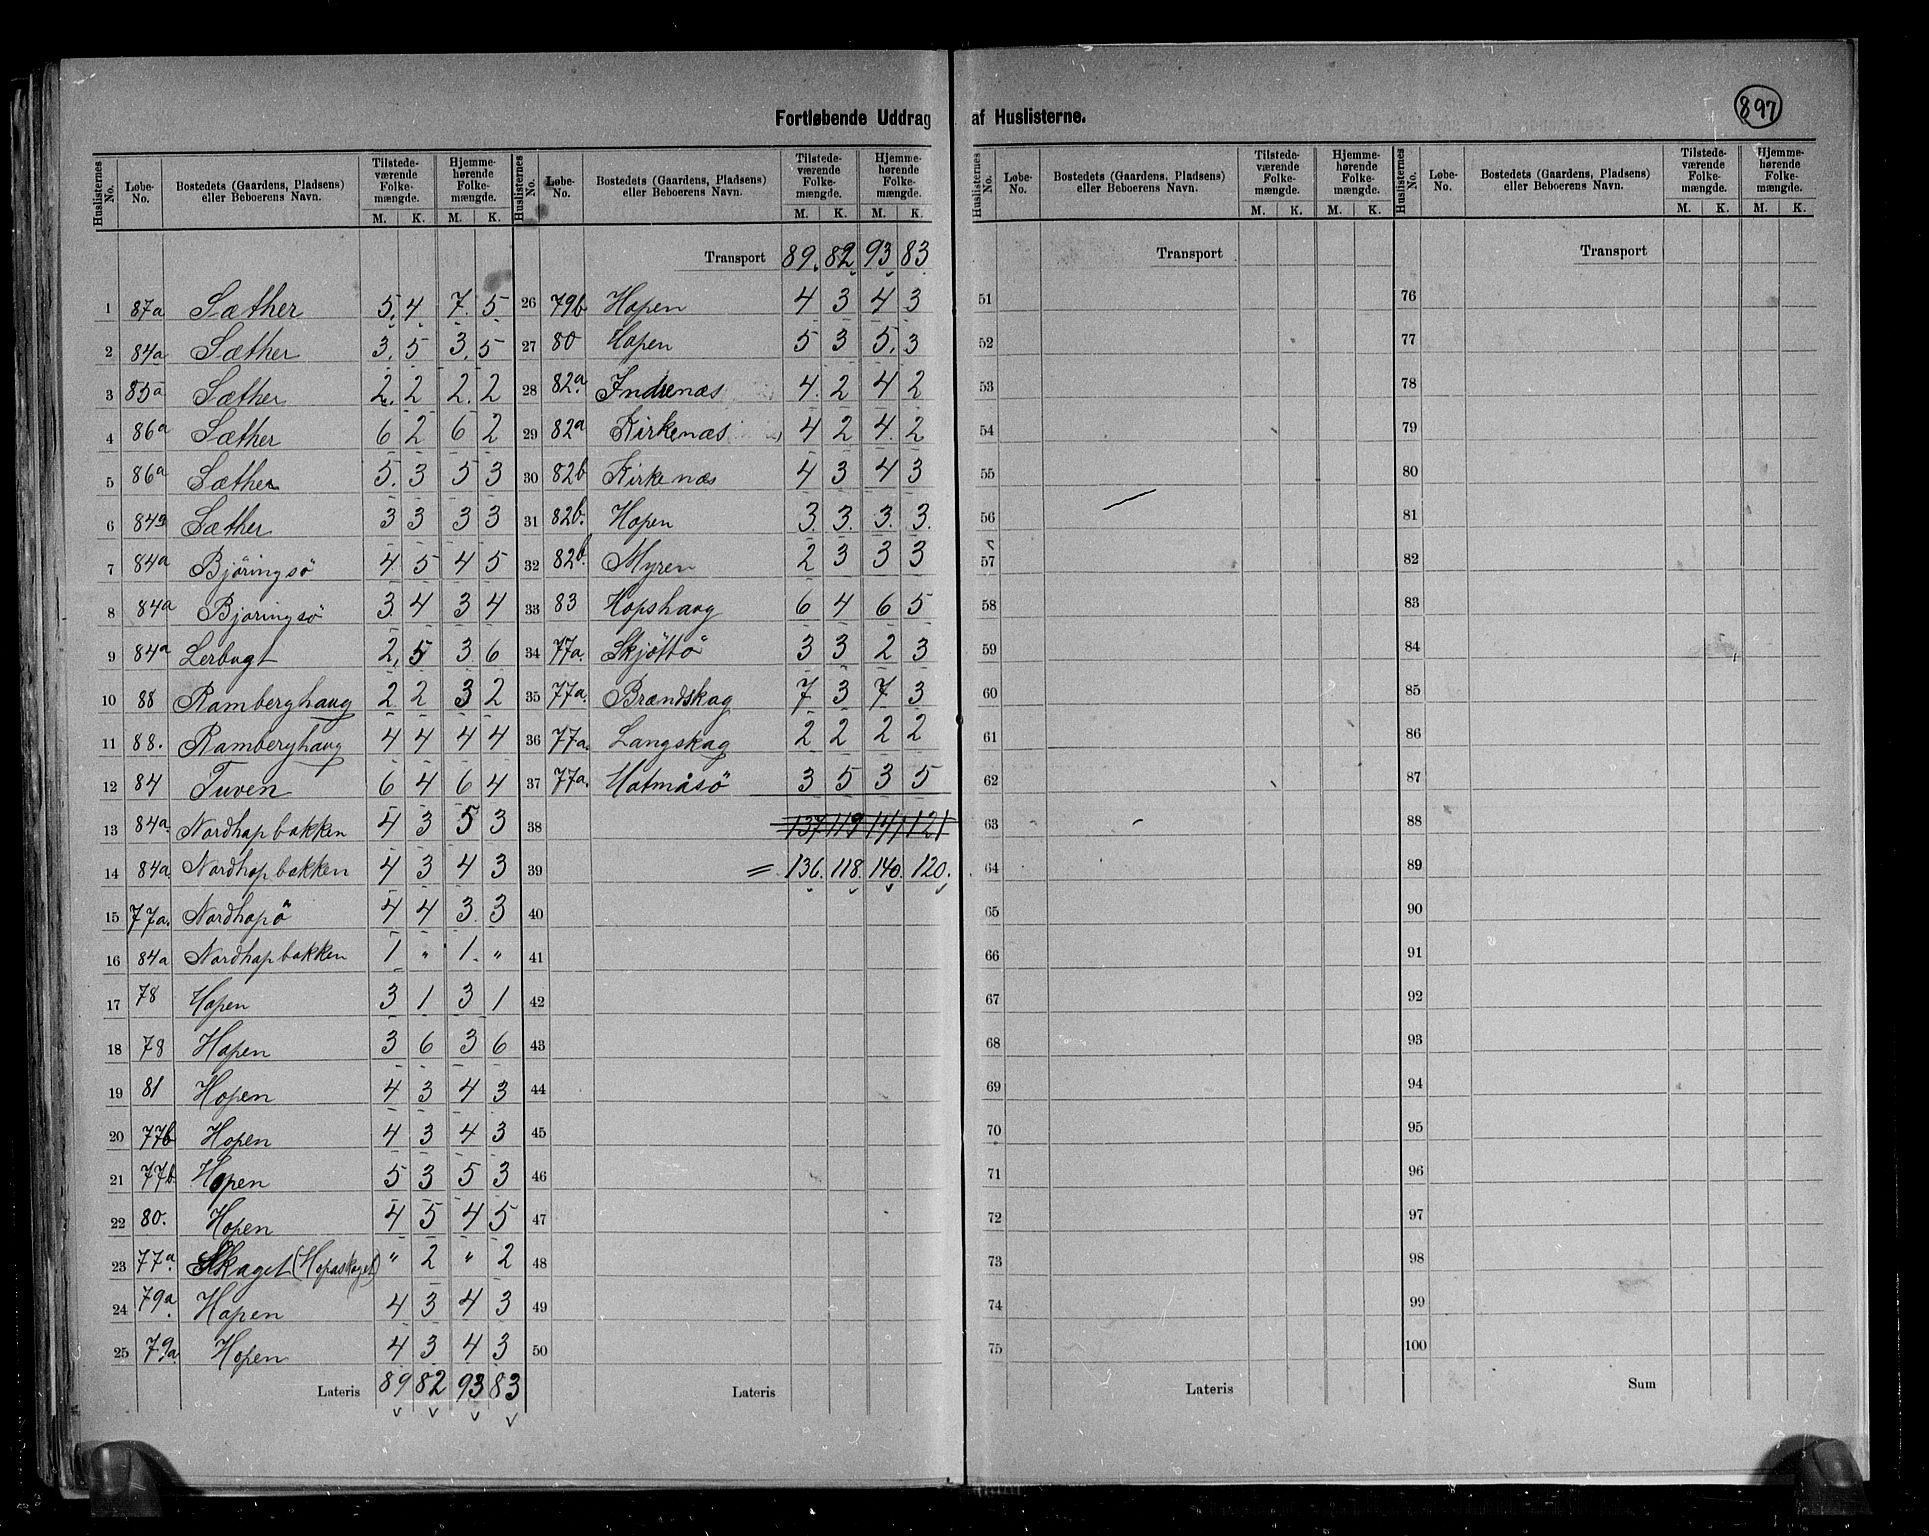 897
Fortløbende Uddrag af Huslisterne.
Huslisternes No. Løbe-No. Bostedets (Gaardens, Pladsens) eller Beboerens Navn. Tilstede-værende Folke-mængde. M. K. Hjemme-hørende Folke-mængde. M. K.
1 87a Sæther 5. 4 7. 5
2 84a Sæther 3. 5 3. 5
3 85a Sæther 2. 2 2. 2
4 86a Sæther 6 2 6 2
5 86a Sæther 5. 3 5 3
6 84a Sæther 3 3 3 3
7 84a Björingsö 4 5 4 5
8 84a Björingsö 3 4 3 4
9 84a Lerbugt 2. 5 3 6
10 88 Ramberghaug 2 2 3 2
11 88. Ramberghaug 4 4 4 4
12 84 Tuven 6 4 6 4
13 84a. Nordhopbakken 4 3 5 3
14 84a. Nordhopbakken 4 3 4 3
15 77a. Nordhopö 4 4 3. 3
16 84a Nordhopbakken 1 " 1. "
17 78 Hopen 3 1 3 1
18 78 Hopen 3 6 3 6
19 81 Hopen 4 3 4 3
20 77b Hopen 4 3 4 3
21 77b Hopen 5 3 5 3
22 80. Hopen 4 5 4 5
23 77a. Skaget (Hopaskaget) " 2 " 2
24 79a. Hopen 4 3 4 3
25 79a. Hopen 4 3 4 3
Lateris 89 82 93 83
Huslisternes No. Løbe-No. Bostedets (Gaardens, Pladsens) eller Beboerens Navn. Tilstede-værende Folke-mængde. M. K. Hjemme-hørende Folke-mængde. M. K.
Transport 89. 82 93 83
26 79b Hopen 4 3 4 3
27 80 Hopen 5 3 5. 3
28 82a. Indrenæs 4. 2 4 2
29 82a Kirkenæs 4 2 4. 2
30 82b Kirkenæs 4 3 4 3
31 82b. Hopen 3. 3. 3. 3.
32 82b. Myren 2 3 3 3
33 83 Hopshaug 6 4 6 5
34 77a. Skjöttö 3 3 2 3
35 77a. Brændskag 7 3 7 3
36 77a. Langskag 2 2 2 2
37 77a. Hatmåsö 3 5 3 5
38 137 119 141 121
39 = 136. 118. 140. 120.
40
41
42
43
44
45
46
47
48
49
50
Lateris
Huslisternes No. Løbe-No. Bostedets (Gaardens, Pladsens) eller Beboerens Navn. Tilstede-værende Folke-mængde. M. K. Hjemme-hørende Folke-mængde. M. K.
Transport
51
52
53
54
55
56
57
58
59
60
61
62
63
64
65
66
67
68
69
70
71
72
73
74
75
Lateris
Huslisternes No. Løbe-No. Bostedets (Gaardens, Pladsens) eller Beboerens Navn. Tilstede-værende Folke-mængde. M. K. Hjemme-hørende Folke-mængde. M. K.
Transport
76
77
78
79
80
81
82
83
84
85
86
87
88
89
90
91
92
93
94
95
96
97
98
99
100
Sum